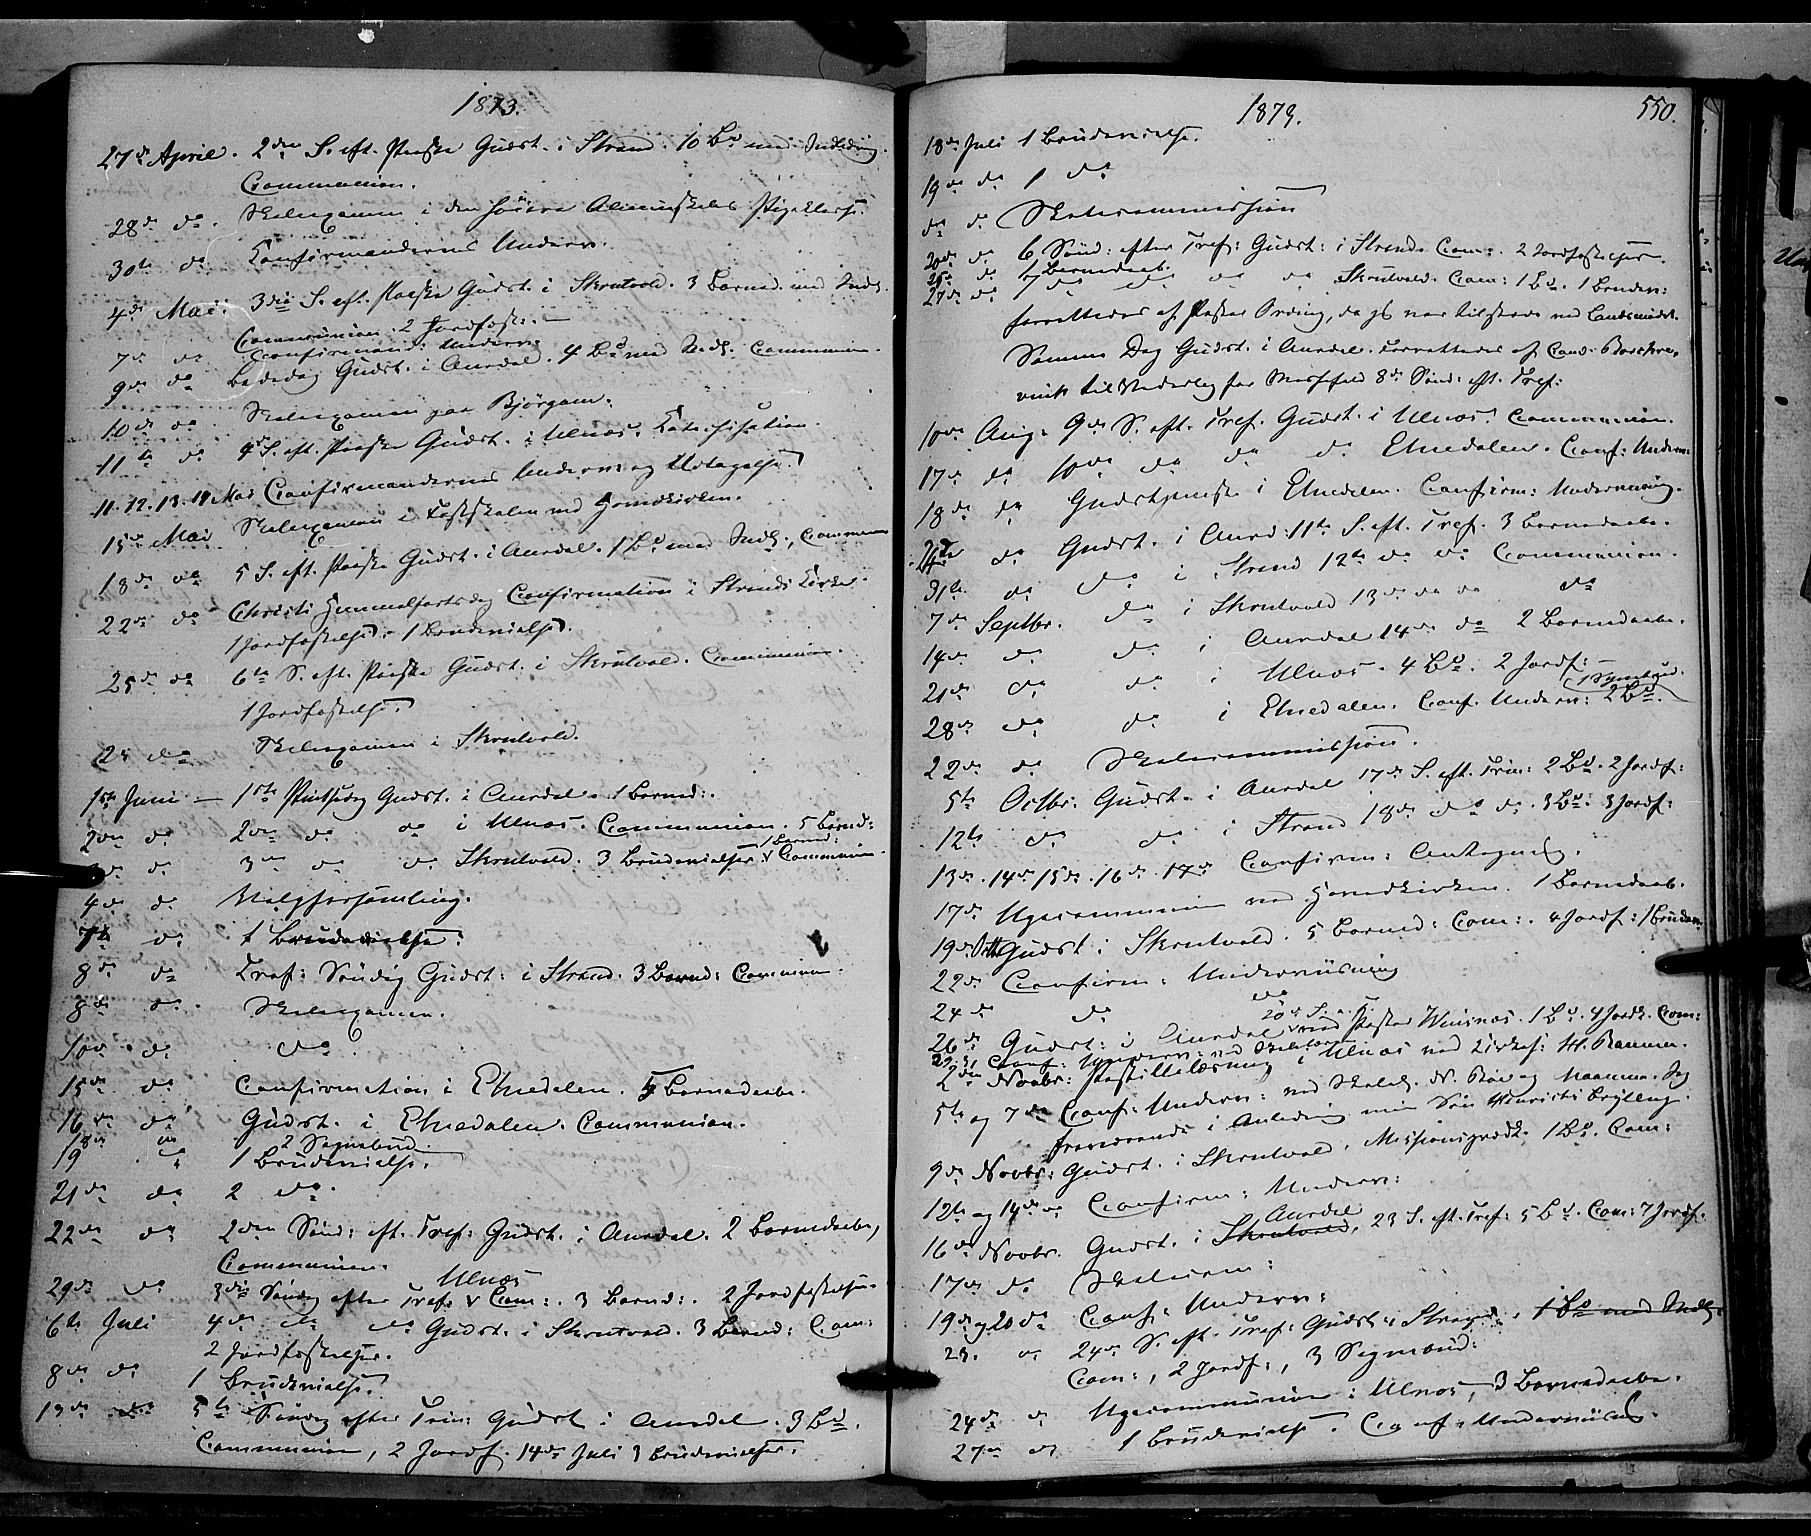 1873.
27de April. 2den S. eft. Paaske Gudst. i Strand. 10 Bd med Indledning.
Communion.
28de do. Skoleexamen i den høiere Almueskoles Pigeklasse.
30te do Confirmandernes Underv:
4de Mai. 3die S. eft. Paaske Gudst. i Skrutvold. 3 Barned. med Indl.
Communion. 2 Jordfæst: —
7de do Confirmand: Underv:
9de do Bededag Gudst. i Aurdal. 4 Bd med Indl. Communion.
10de do Skoleexamen paa Bjørgum.
11te do 4de S. eft. Paaske Gudst. i Ulnæs. Katechisation.
11. 12. 13. 14 Mai Confirmandernes Underv: og Udtagelse.
15de Mai Skoleexamen i Fastskolen ved Hovedkirken.
18de do 5 S. eft. Paaske Gudst. i Aurdal. 1 Bd med Indl., Communion
22de do Christi Himmelfartsdag Confirmation i Strands Kirke.
1 Jordfæstelse. 1 Brudevielse.
25de do 6te S. eft. Paaske Gudst. i Skrutvold. Communion.
1 Jordfæstelse.
25 do Skoleexamen i Skrutvold.
1ste Juni — 1ste Pintsedag Gudst. i Aurdal. 1 Barned:.
2den do 2den do do i Ulnæs. Communion. 5 Barned:
1 Barned:
3die do 3die do do Skrutvold. 3 Brudevielser v Communion.
4de do Valgforsamling.
7de do 1 Brudevielse.
8de do Tref: Søndag Gudst: i Strand. 3 Barned: Communion.
8de do. Skoleexamen.
10de do do.
15de do Confirmation i Etnedalen. 5 Barnedaabe.
16de do Gudst. i Etnedalen. Communion.
18de do 2 Sognebud.
19 do 1 Brudevielse.
21de do 2 do.
22de do 2den Sønd: eft. Tref: Gudst: i Aurdal. 2 Barnedaabe,
Communion.
Ulnæs
29de do 3die Søndag efter Tref: v Com:. 3 Barned:. 2 Jordfæstelser.
6te Juli 4de do do Gudst. i Skrutvold. 3 Barned: Com:
2 Jordfæstelser.
8de do 1 Brudevielse.
13de do 5te Søndag efter Trin: Gudst i Aurdal. 3 Bd.
Communion, 2 Jordf. 14de Juli 3 Brudevielser.
1873.
550.
18de Juli 1 Brudevielse.
19de do 1 do
do do Skolecommission
20de do 6 Sønd: efter Tref: Gudst: i Strand. Com:. 2 Jordfæstelser.
25de do 1 Barnedaab
27de do 7 do do do Skrutvold. Com: 1 Bd. 1 Brudev:
forrettedes af Pastor Ording, da jeg var tilstede ved Landsmødet.
Samme Dag Gudst. i Aurdal. forrettedes af Cand:
8de Sønd: eft. Tref:
10de Aug. 9de S. eft. Tref. Gudst. i Ulnæs. Communion.
17de do 10de do do do Etnedalen. Conf: Underv:
18de do Gudstjeneste i Etnedalen. Confirm: Underviisning.
24de do Gudst. i Aurd: 11te S. eft. Tref. 3 Barnedaabe.
31te do do i Strand 12te do do Communion.
7de Septbr. do i Skrutvold 13de do do do
14de do do i Aurdal 14de do 2 Barnedaabe.
21de do do i Ulnæs. 4 Bd. 2 Jordf: —
1 Sognebud.
28de do do i Etnedalen. Conf. Underv: 2 Bd.
22de do Skolecommission.
5te Octbr: Gudst. i Aurdal 17de S. eft. Trin: 2 Bd. 2 Jordf:
12te do do i Strand 18de do do. 3 Bd: 3 Jordf:
13de. 14de 15de. 16de. 17de Confirm: Antagelse.
17de Ugecommunion ved Hovedkirken. 1 Barnedaab.
19de Octb Gudst i Skrutvold. 5 Barned: Com:. 4 Jordf: 1 Brudev:
22de Confirm: Underviisning
24de do do
20de S. e. T.
26de Gudst: i Aurdal v ved Pastor 1 Bd. 4 Jordf. Com:
29. 31 Conf: Underv: ved Skolelærer
2den Novbr: Postillelæsning i Ulnæs ved Kirkes: H. Ranum.
5te og 7de Conf: Underv: ved Skolel. N. Jeg
fraværende i Anledning min Søn Henriks Bryllup.
9de Novbr: Gudst. i Skrutvold. Missionspræd. 1 Bd. Com:
12te og 14de do Confirm: Underv:
Aurdal
16de Novbr. Gudst. i Skrutvold, 23 S. eft. Tref: 5 Bd. Com: 7 Jordf.
17de do Skolecom:
19de og 20 do Conf: Underv:
23. do 24de S. eft. Tref: Gudst i Strand. 1 Bd med Indl.
Com:, 2 Jordf:, 3 Sognebud:
24de do Ugecommunion i Ulnæs, 3 Barnedaabe.
27de do 1 Brudevielse. Conf: Underviisning.